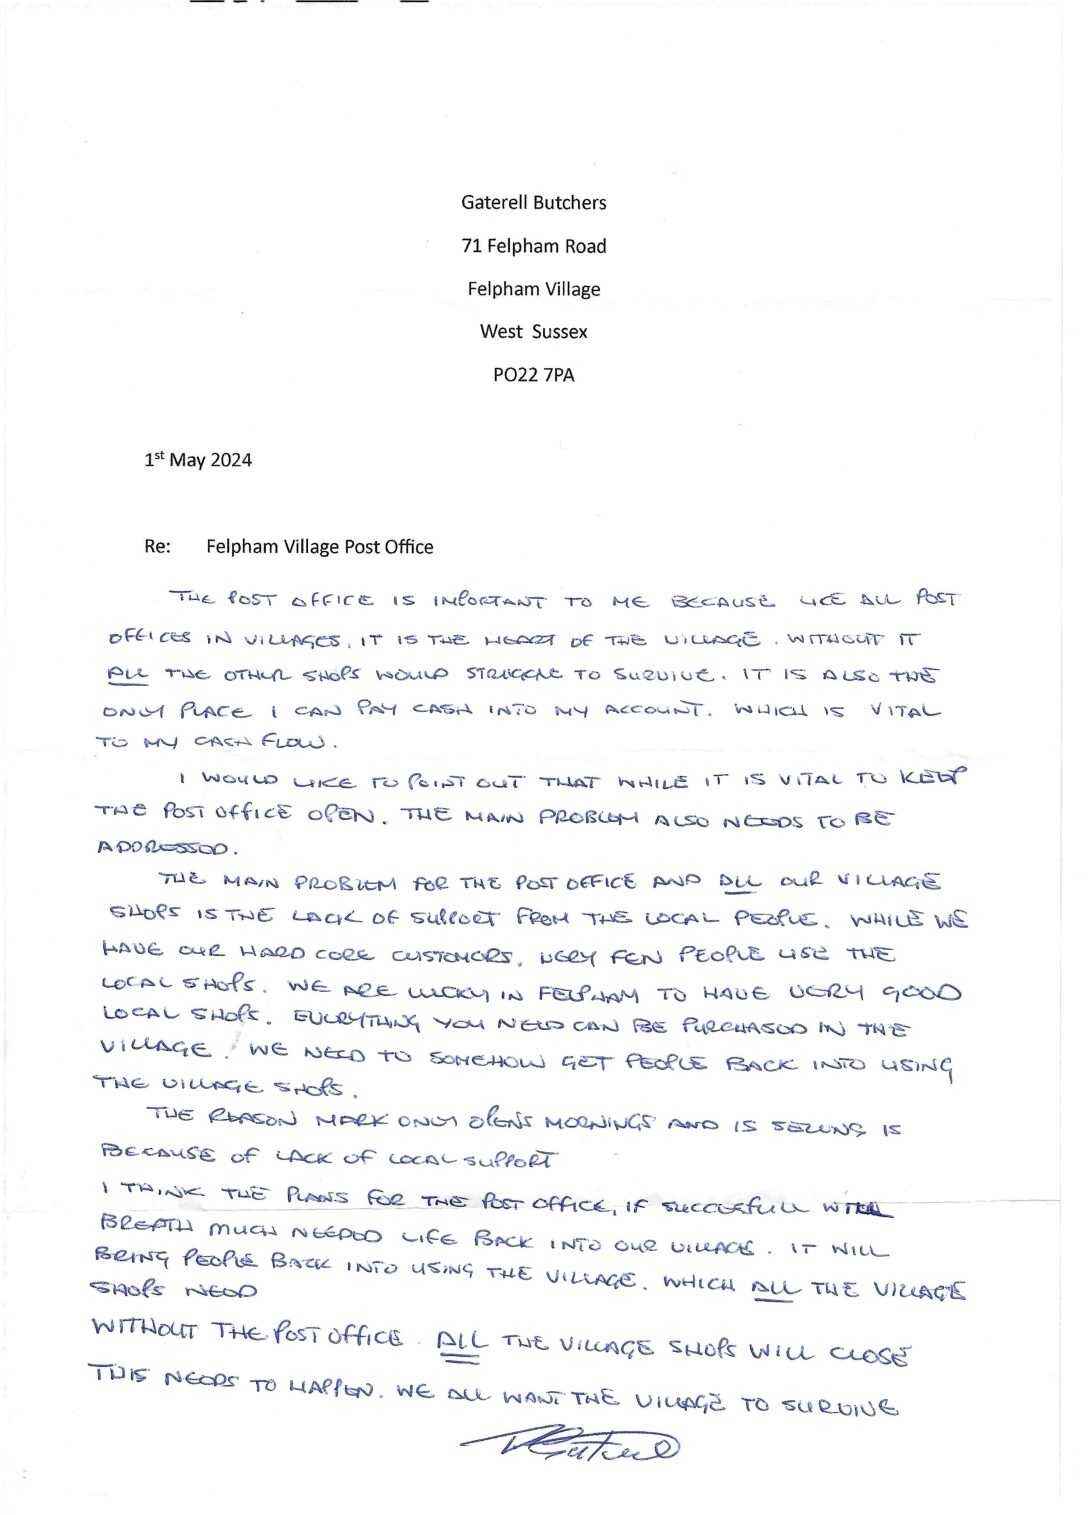 Gaterell Butchers
71 Felpham Road
Felpham Village
West Sussex
PO22 7PA
1st May 2024
Re: Felpham Village Post Office
THE POST OFFICE IS IMPORTANT TO ME BECAUSE LIKE ALL POST
OFFICES IN VILLAGES, IT IS THE HEART OF THE VILLAGE. WITHOUT IT
ALL THE OTHER SHOPS WOULD STRUGGLE TO SURVIVE. IT IS ALSO THE
ONLY PLACE I CAN PAY CASH INTO MY ACCOUNT. WHICH IS VITAL
TO MY CASH FLOW.
I WOULD LIKE TO POINT OUT THAT WHILE IT IS VITAL TO KEEP
THE POST OFFICE OPEN. THE MAIN PROBLEM ALSO NEEDS TO BE
ADDRESSED.
THE MAIN PROBLEM FOR THE POST OFFICE AND ALL OUR VILLAGE
SHOPS IS THE LACK OF SUPPORT FROM THE LOCAL PEOPLE. WHILE WE
HAVE OUR HARD CORE CUSTOMERS. VERY FEW PEOPLE USE THE
LOCAL SHOPS. WE ARE LUCKY IN FELPHAM TO HAVE VERY GOOD
LOCAL SHOPS. EVERYTHING YOU NEED CAN BE PURCHASED IN THE
VILLAGE! WE NEED TO SOMEHOW GET PEOPLE BACK INTO USING
THE VILLAGE SHOPS.
THE REASON MARK ONLY OPENS MORNINGS AND IS SELLING IS
BECAUSE OF LACK OF LOCAL SUPPORT
I THINK THE PLANS FOR THE POST OFFICE, IF SUCCESFULL WILL
BREATH MUCH NEEDED LIFE BACK INTO OUR VILLAGE. IT WILL
BRING PEOPLE BACK INTO USING THE VILLAGE. WHICH ALL THE VILLAGE
SHOPS NEED
WITHOUT THE POST OFFICE. ALL THE VILLAGE SHOPS WILL CLOSE
THIS NEEDS TO HAPPEN. WE ALL WANT THE VILLAGE TO SURVIVE